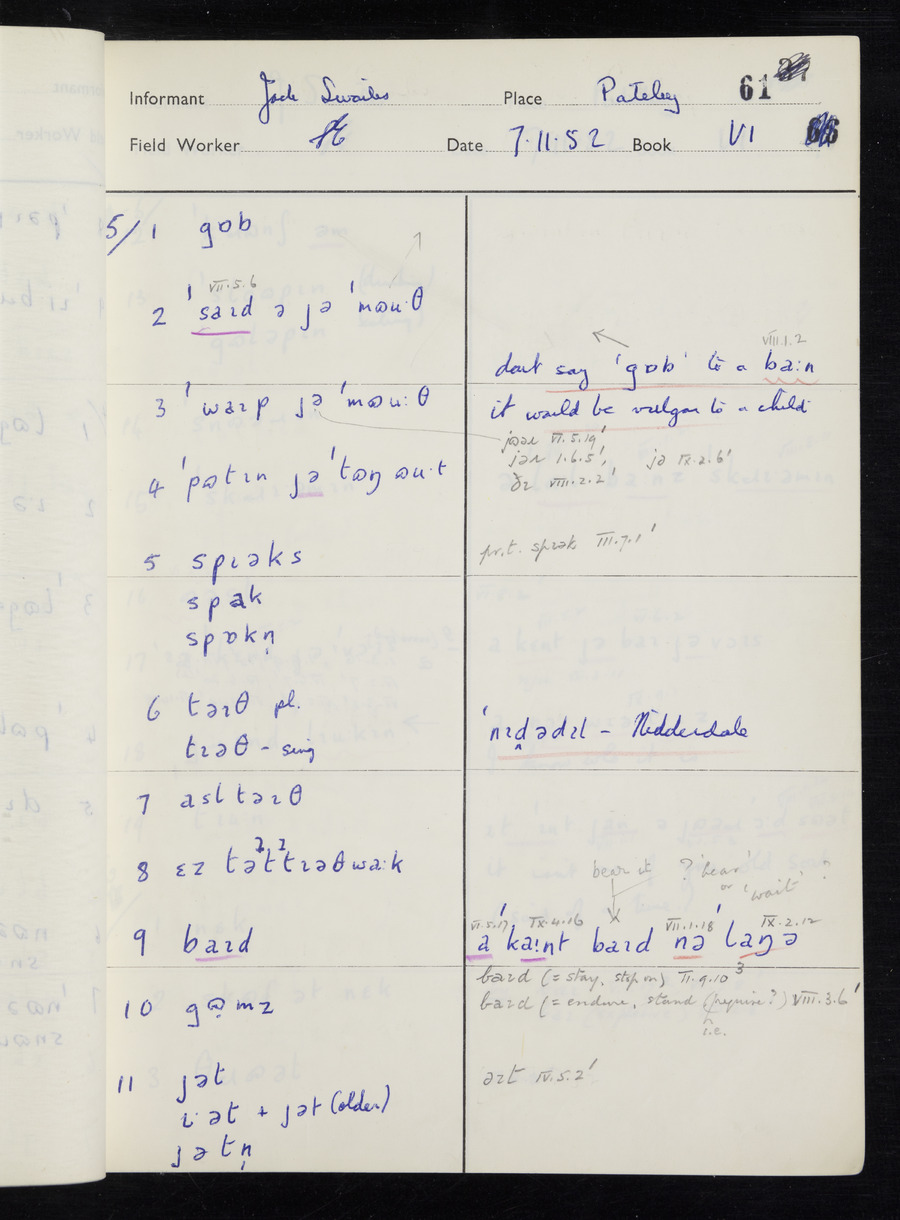 Informant Jack Swailes Place Pateley 61
Field Worker Date 7.11.52 Book VI
5/1 gɒb
VII.5.6
2 ˈsaɪd ə jə ˈmɷu·θ
VIII.1.2
don't say 'gɒb' to a ba:n
3 ˈwaɪp jə ˈmɷu:θ
it would be vulgar to a child
VI.5.19'
jəɪ I.6.5', jə IX.2.6'
VIII.2.2'
4 ˈpɷtɪn jə ˈtɷŋ ɷu·t
pr.t. spɪək III.7.1'
5 spɪəks
spak
spɒkn̩
6 təɪθ pl.
tɪəθ - sing
ˈnɪd̪ədɪl - Nidderdale
7 asltəɪθ
8 ɛz tətːtɪəθwa:k
bear it ? 'hear'
or 'wait' ?
VI.5.17 IX.4.16 VII.1.18' IX.2.12
9 baɪd
a ˈka:nt baɪd nə ˈlaŋə
baɪd (= stay, stop on) II.9.10³
baɪd (= endure, stand (require?) VIII.3.6'
i.e.
10 gɷmz
11 jət
əɪt IV.5.2'
ɪ·ət + jət (older)
jətn̩